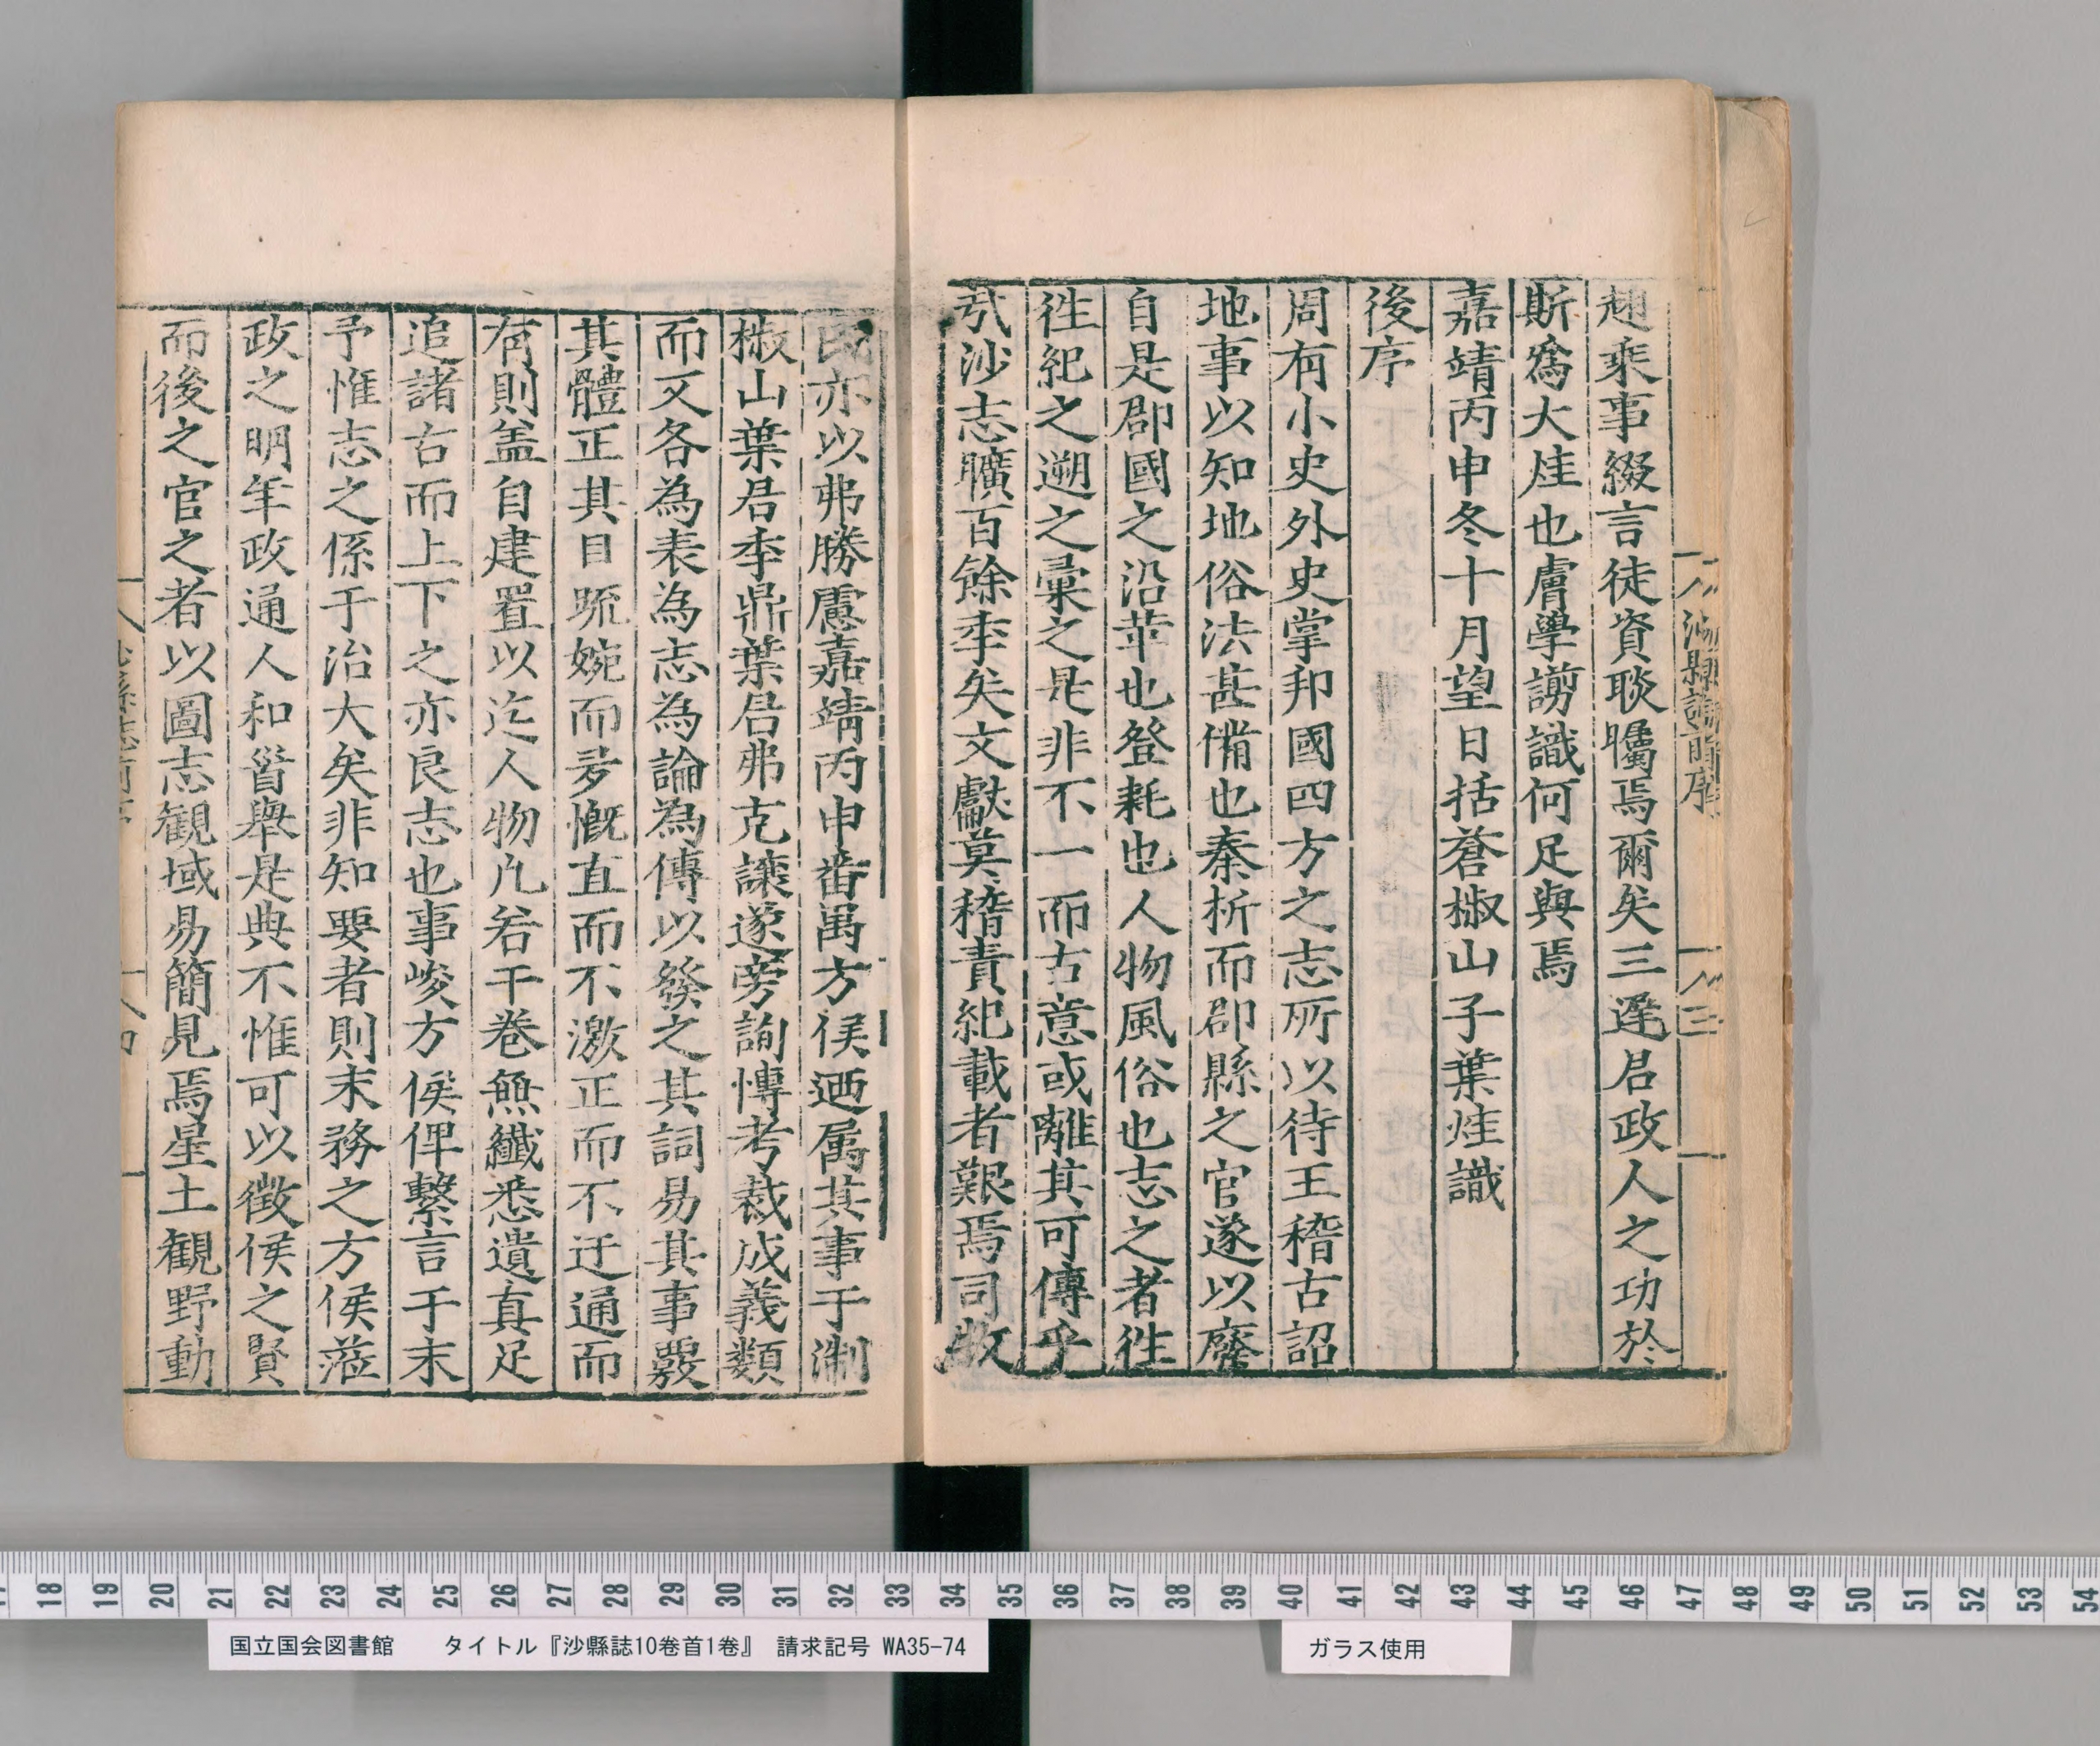 趣乘事綴言徒資聆矚焉爾矣三逢君政人之功於
斯爲大烓也膚學謭識何足與焉
嘉靖丙申冬十月望日括蒼椒山子葉烓識
後序
周有小史外史掌邦國四方之志所以待王稽古詔
地事以知地俗法甚備也秦析而郡縣之官遂以廢
自是郡國之沿革也登耗也人物風俗也志之者徃
徃紀之遡之彚之是非不一而古意或離其可傳乎
矧沙志曠百餘季矣文獻莫稽責紀載者艱焉司牧
民亦以弗勝慮嘉靖丙申番禺方侯廼属其事于淛
椒山葉君季鼎葉君弗克讓遂旁詢慱考裁成義類
而又各為表為志為論為傳以發之其詞易其事覈
其體正其目䟽婉而夛慨直而不激正而不迂通而
有則盖自建置以迄人物凢若干卷無纖悉遺真足
追諸古而上下之亦良志也事峻方侯俾繫言于末
予惟志之係于治大矣非知要者則末務之方侯蒞
政之明年政通人和胥舉是典不惟可以徵侯之賢
而後之官之者以圖志觀域易簡見焉星土觀野動
沙縣誌前序
三
四
国立国会図書館　タイトル『沙縣誌10巻首1巻』　請求記号 WA35-74
ガラス使用
18 19 20 21 22 23 24 25 26 27 28 29 30 31 32 33 34 35 36 37 38 39 40 41 42 43 44 45 46 47 48 49 50 51 52 53 54